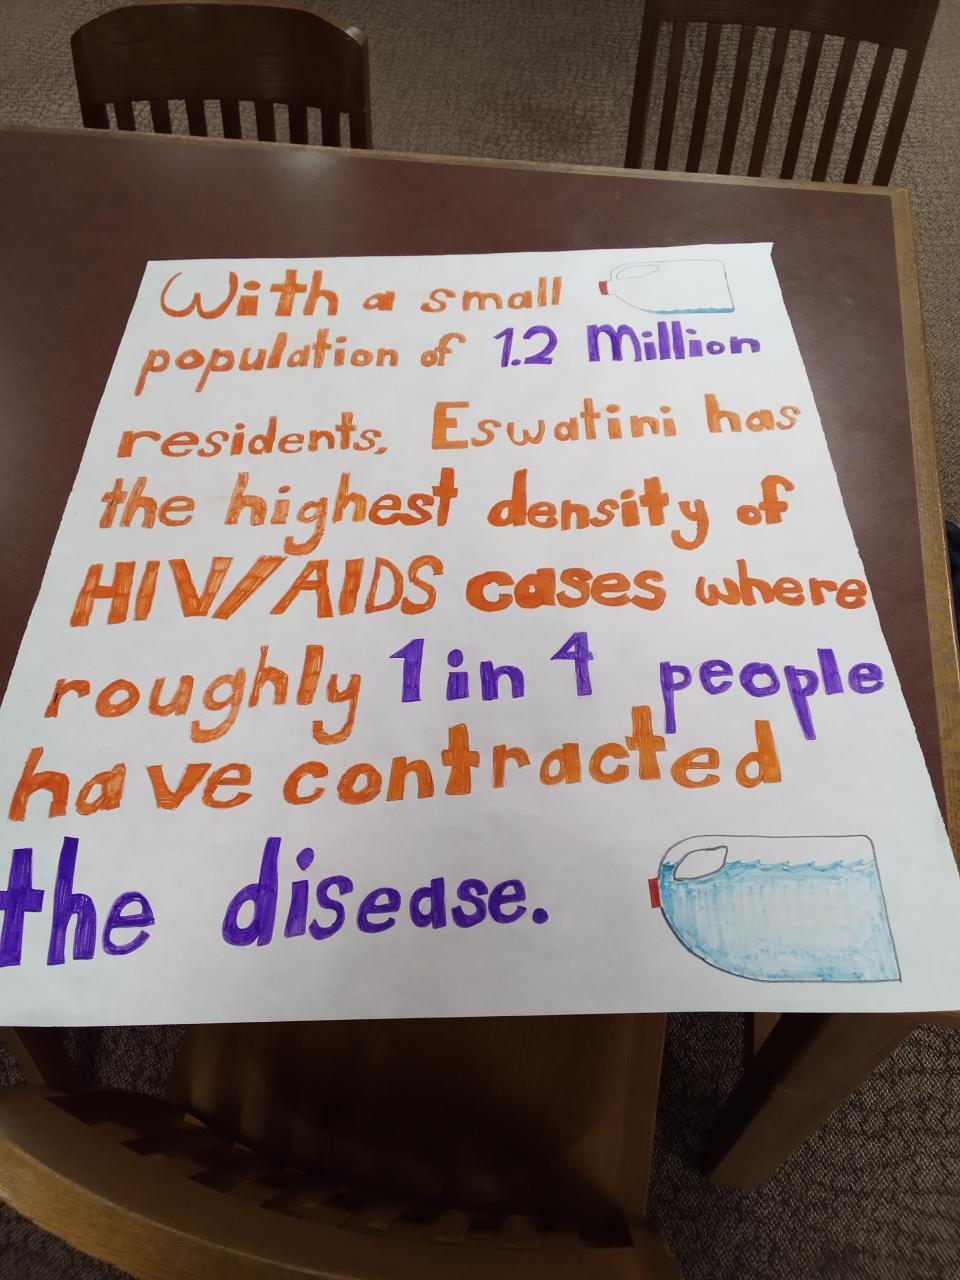 With a small
population of 1.2 Million
residents, Eswatini has
the highest density of
HIV/AIDS cases where
roughly 1 in 4 people
have contracted
the disease.